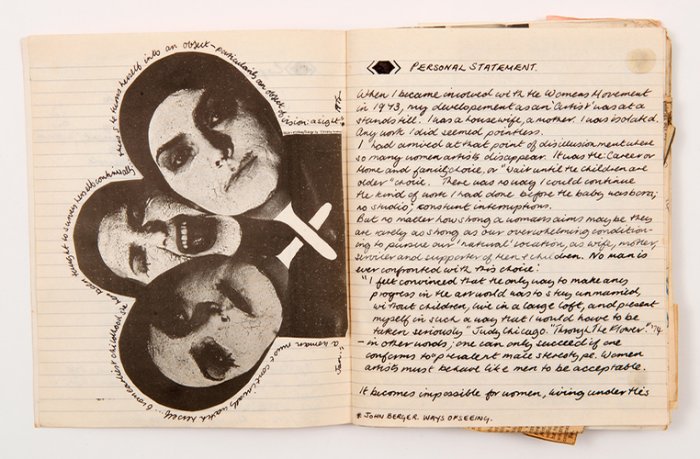 a woman must continually watch herself...
From earliest childhood she has been taught to survey herself continually
thus she turns herself into an object - particularly an object of vision: a sight*
PERSONAL STATEMENT.
When I became involved with the Womens Movement
in 1973, my developement as an 'Artist' was at a
standstill. I was a housewife, a mother. I was isolated.
Any work I did seemed pointless.
I had arrived at that point of disillusionment where
so many women artists disappear. It was the Career or
Home and family choice, or "Wait until the children are
older" choice. There was no way I could continue
the kind of work I had done before the baby was born;
no studio; constant interruptions.
But no matter how strong a womans aims may be they
are rarely as strong as our overwhelming condition-
ing to pursue our 'natural' vocation, as wife, mother,
servicer and supporter of men & children. No man is
ever confronted with this choice:
"I felt convinced that the only way to make any
progress in the art world was to stay unmarried,
without children, live in a large loft, and present
myself in such a way that I would have to be
taken seriously" Judy Chicago. "Through The Flower." '74.
- in other words; one can only succeed if one
conforms to prevalent male stereotype. Women
artists must behave like men to be acceptable.
It becomes impossible for women, living under this
* JOHN BERGER. WAYS OF SEEING.